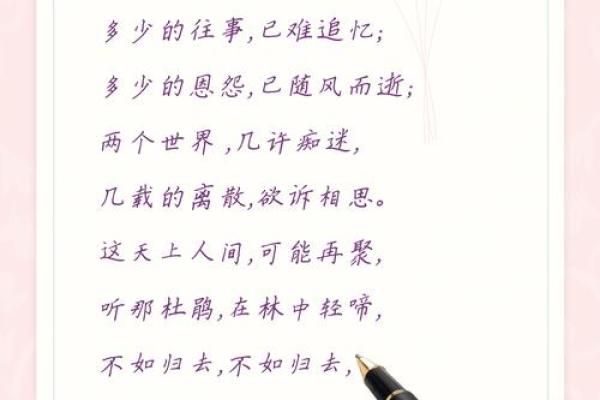 多少的往事,已难追忆;
多少的恩怨,已随风而逝;
两个世界 ,几许痴迷,
几载的离散,欲诉相思。
这天上人间,可能再聚,
听那杜鹃,在林中轻啼,
不如归去,不如归去,